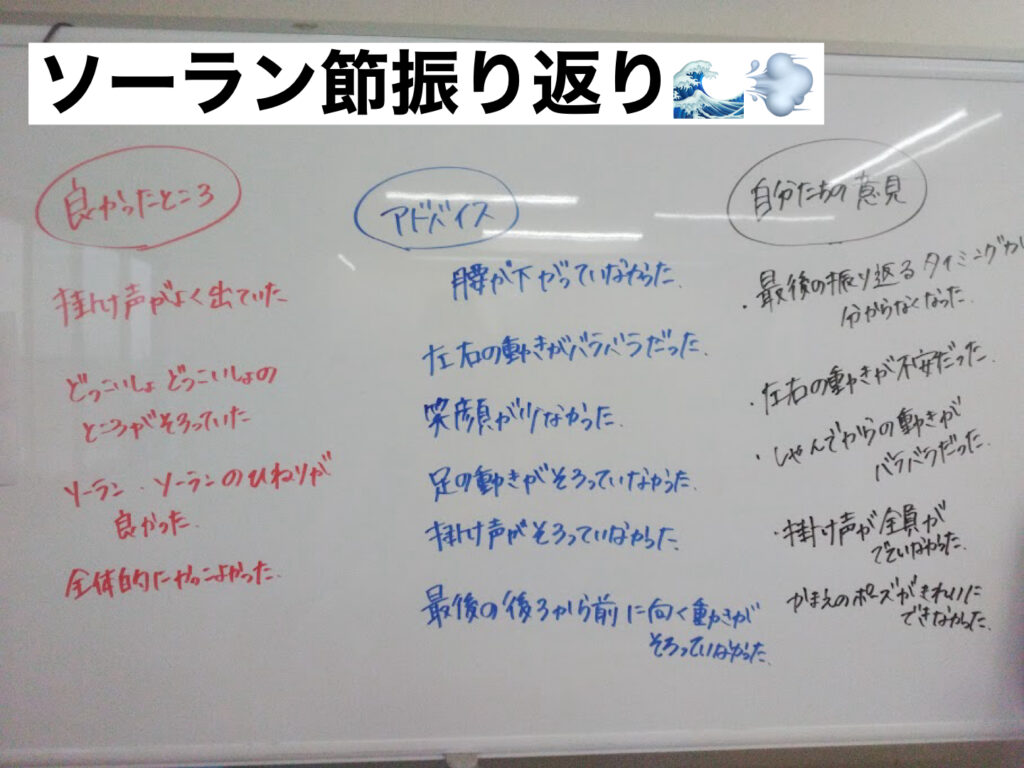 ソーラン節振り返り🌊💨
良かったところ
掛け声がよく出ていた
どっこいしょ どっこいしょの
ところがそろっていた
ソーラン、ソーランのひねりが
良かった.
全体的にかっこよかった.
アドバイス
腰が下がっていなかった.
左右の動きがバラバラだった.
笑顔が少なかった.
足の動きがそろっていなかった.
掛け声がそろっていなかった.
最後の後ろから前に向く動きが
そろっていなかった.
自分たちの意見
・最後の振り返るタイミングが
分からなくなった.
・左右の動きが不安だった.
・しゃんでからの動きが
バラバラだった.
・掛け声が全員が
でていなかった.
かまえのポーズがきれいに
できなかった.